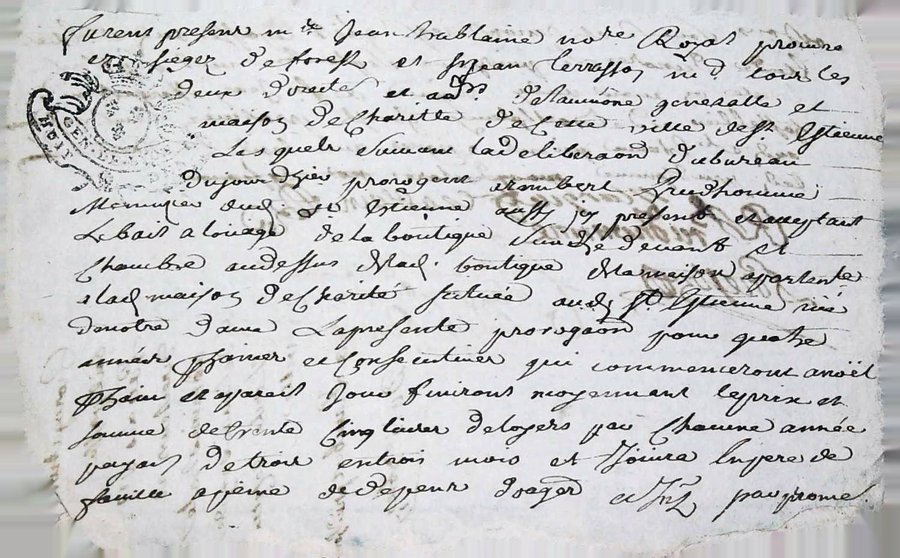 furent present m.re Jean trablaine not.re Royal procure
et siegez de forest et s.r Jean terrasson m.d tous les
deux directe et ad.rs delaumone generalle et
HUIT GEN
maison de Charitte de Cette ville de S.t Estienne
Lesquels suivant ladeliberaon dubureau
dujourdhier prorogent a imbert Prudhomme
Menuisier dud. St Estienne aussy icy present et acceptant
Lebail alouage de la boutique sur le devant et
Chambre audessus delad. boutique delamaison apartente
alad maison de Charité scituée aud. St. Estienne rüe
denotre dame Lapresente prorogaon pour quatre
années et Consecutives qui commenceront anoël
et apareil Jour finiront moyennant leprix et
somme de trente Cinq livres deloyers par Chacune année
payab detrois entrois mois et Joüira Enpere de
famille apeine de depens Et par prome.